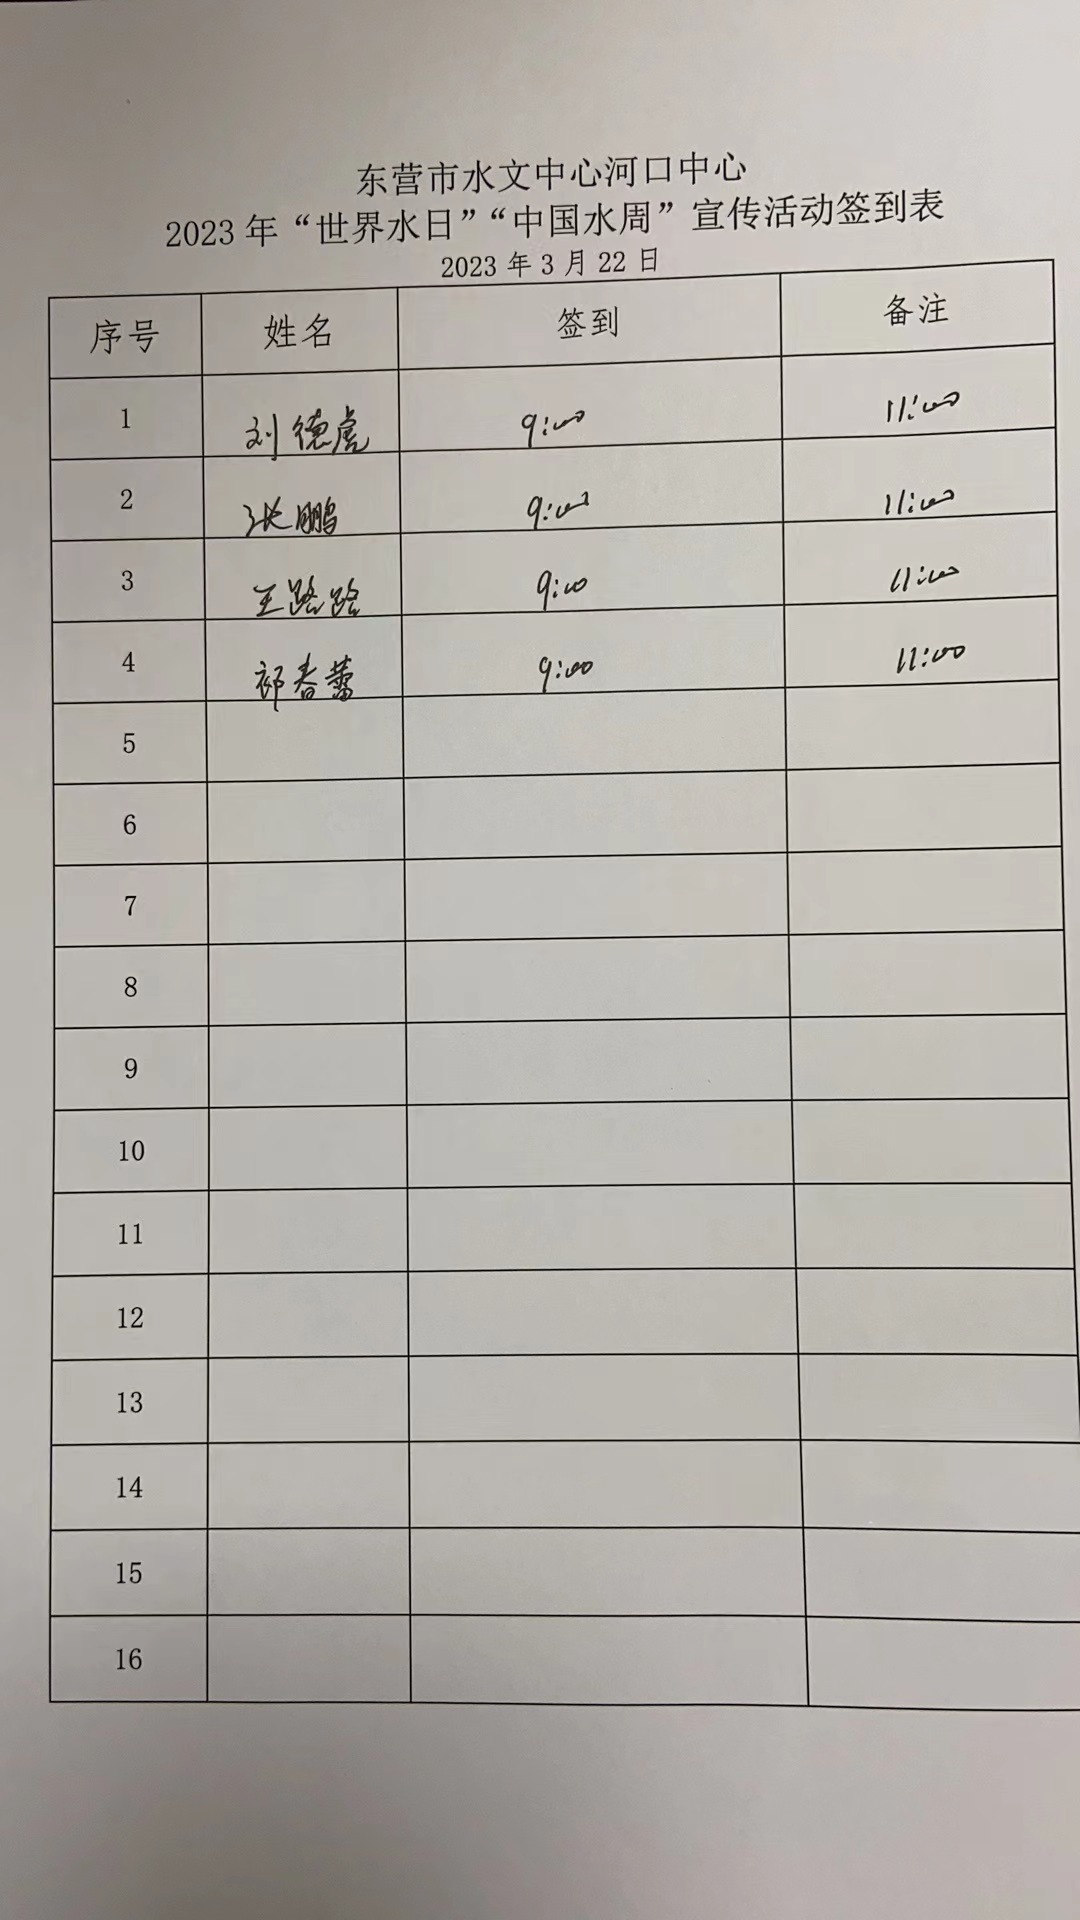 东营市水文中心河口中心
2023 年 “世界水日” “中国水周” 宣传活动签到表
2023 年 3 月 22 日
序号 姓名 签到 备注
1 刘德虎 9:00 11:00
2 张鹏 9:00 11:00
3 王路路 9:00 11:00
4 祁春蕾 9:00 11:00
5
6
7
8
9
10
11
12
13
14
15
16